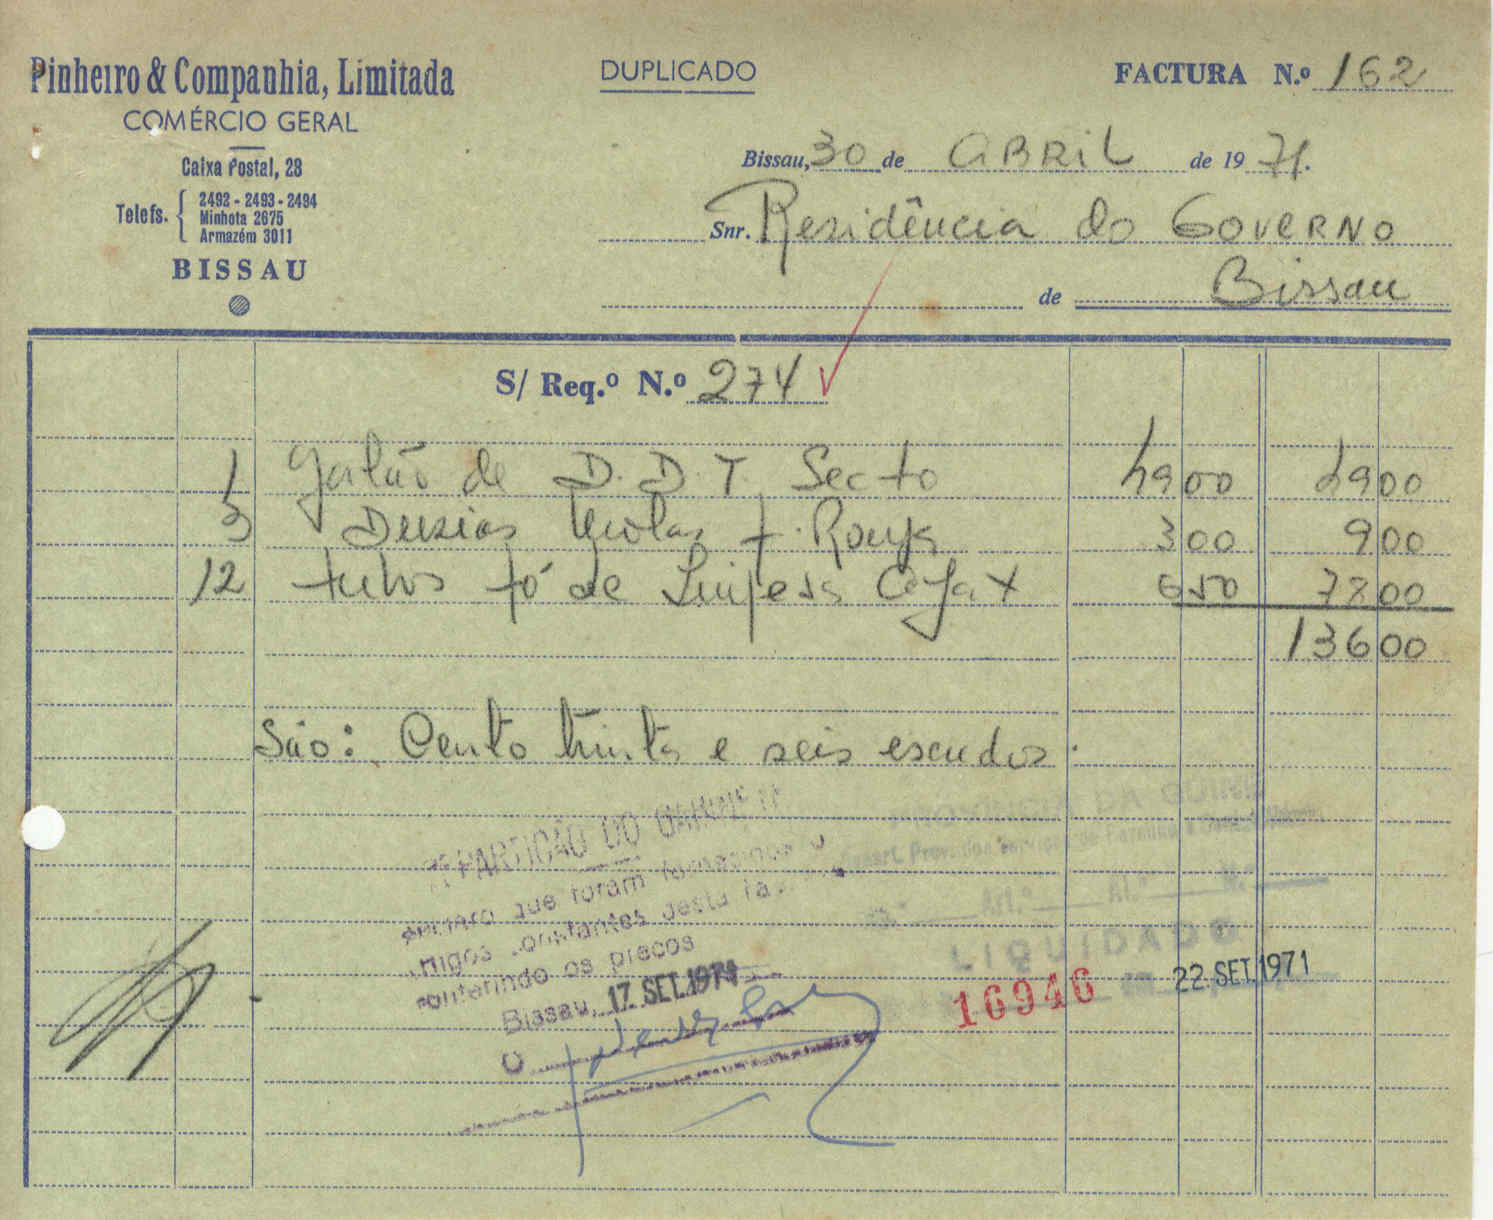 Pinheiro & Companhia, Limitada
COMÉRCIO GERAL
Caixa Postal, 28
Telefs. 2492 - 2493 - 2494
Minhota 2675
Armazém 3011
BISSAU
DUPLICADO
FACTURA N.º 162
Bissau, 30 de ABRIL de 1971.
Snr. Residência do GOVERNO
de Bissau
S/ Req.º N.º 274
1 galão de D.D.T Secto 4900 4900
3 300 900
12 tubos pó de 650 7800
13600
São: Cento trinta e seis escudos.
REPARTIÇÃO DO GABINETE
que foram fornecidos
constantes desta
conferindo os preços
Bissau, 17. SET. 1971
O
PROVINCIA DA GUINÉ
Art.º Al.ª N.º
LIQUIDADO
16946 22. SET. 1971